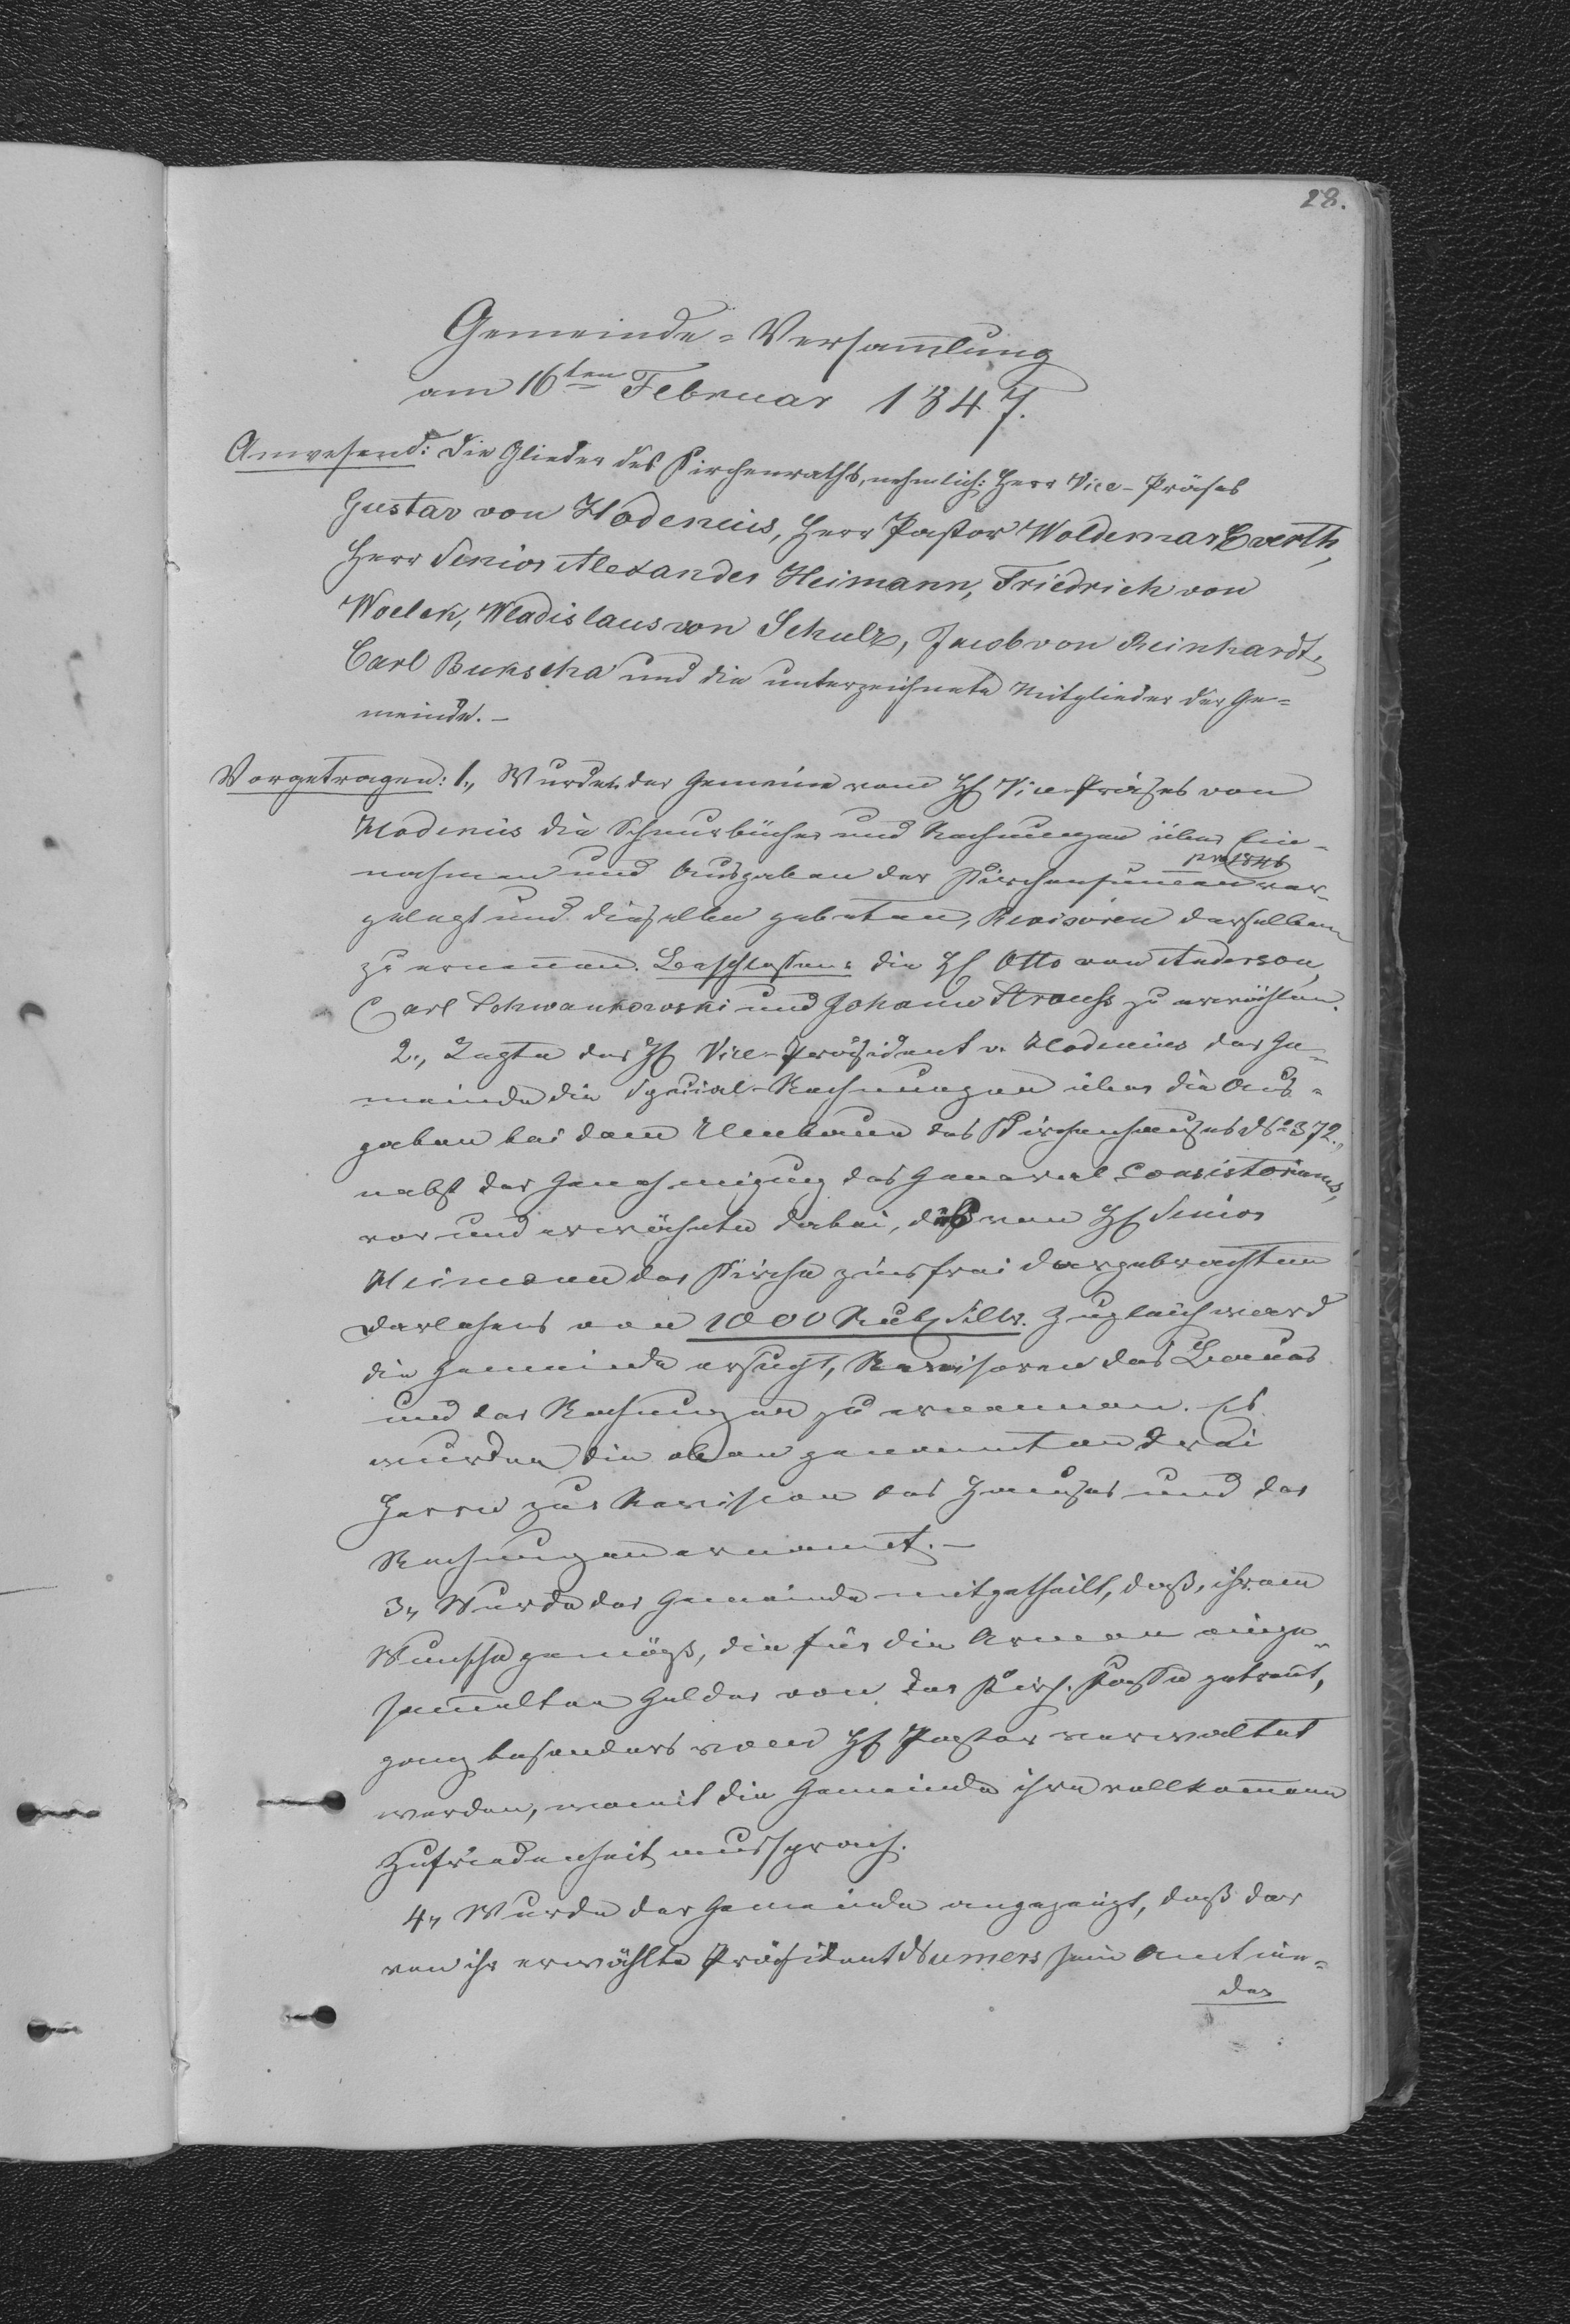 28.
Gemeinde-Versam̅lung
am 16ten Februar 1847.
Anwesend: Die Glieder des Kirchenraths, nehmlich: Herr Vice-Präses
Gustav von Hodenius, Herr Pastor Woldemar Everth,
Herr Senior Alexander Heimann, Friedrich von
Woelck, Wladislaus von Schulz, Jacob von Reinhardt,
Carl Bukscha und die unterzeichnete Mitglieder der Ge-
meinde.-
Vorgetragen: 1., Wurden der Gemeine vom H. Vice-Präses von
Hodenius die Schnurbücher und Rechnungen über Ein-
pro 1846
nahmen und Ausgaben der Kirchensum̅en vor-
gelegt und dieselben gebeten, Revisoren derselben
zu ernen̅en. Beschlossen: die H. Otto von Anderson,
Carl Schwankowski und Johann Strauss zu erwählen.
2., Legte der H. Vice-Präsident v. Hodenius der Ge-
meinde die Special-Rechnungen über die Aus-
gaben bei dem Neubaue des Kirchenhauses No 372.,
nebst der Genehmigung des General Consistoriums,
vor und erwähnte dabei, des von H. Senior
Heimann der Kirche zinsfrei dargebrachten
Darlehens von 1000 Rub. Silb. Zugleich ward
die Gemeinde ersucht, Revisoren des Baues
und der Rechnungen zu ernennen. Es
wurden die oben genannten drei
Herrn zur Revision des Hauses und der
Rechnungen ernannt.-
3., Wurde der Gemeinde mitgetheilt, daß, ihrem
Wunsche gemäß, die für die Armen einge-
sam̅elten Gelder von der Kirch. Kasse getren̅t,
ganz besonders vom H. Pastor verwaltet
werden, womit die Gemeinde ihre vollkom̅ene
Zufriedenheit aussprach.
4., Wurde der Gemeinde angezeigt, daß der
von ihr erwählte Präsident Numers sein Amt nie-
der